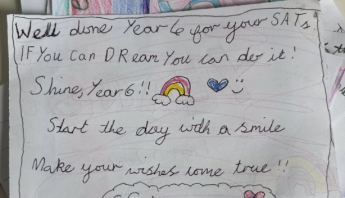 Well done Year 6 for your SATs
IF You Can DReam You can do it!
Shine, Year 6!!
Start the day with a smile
Make your wishes come true!!